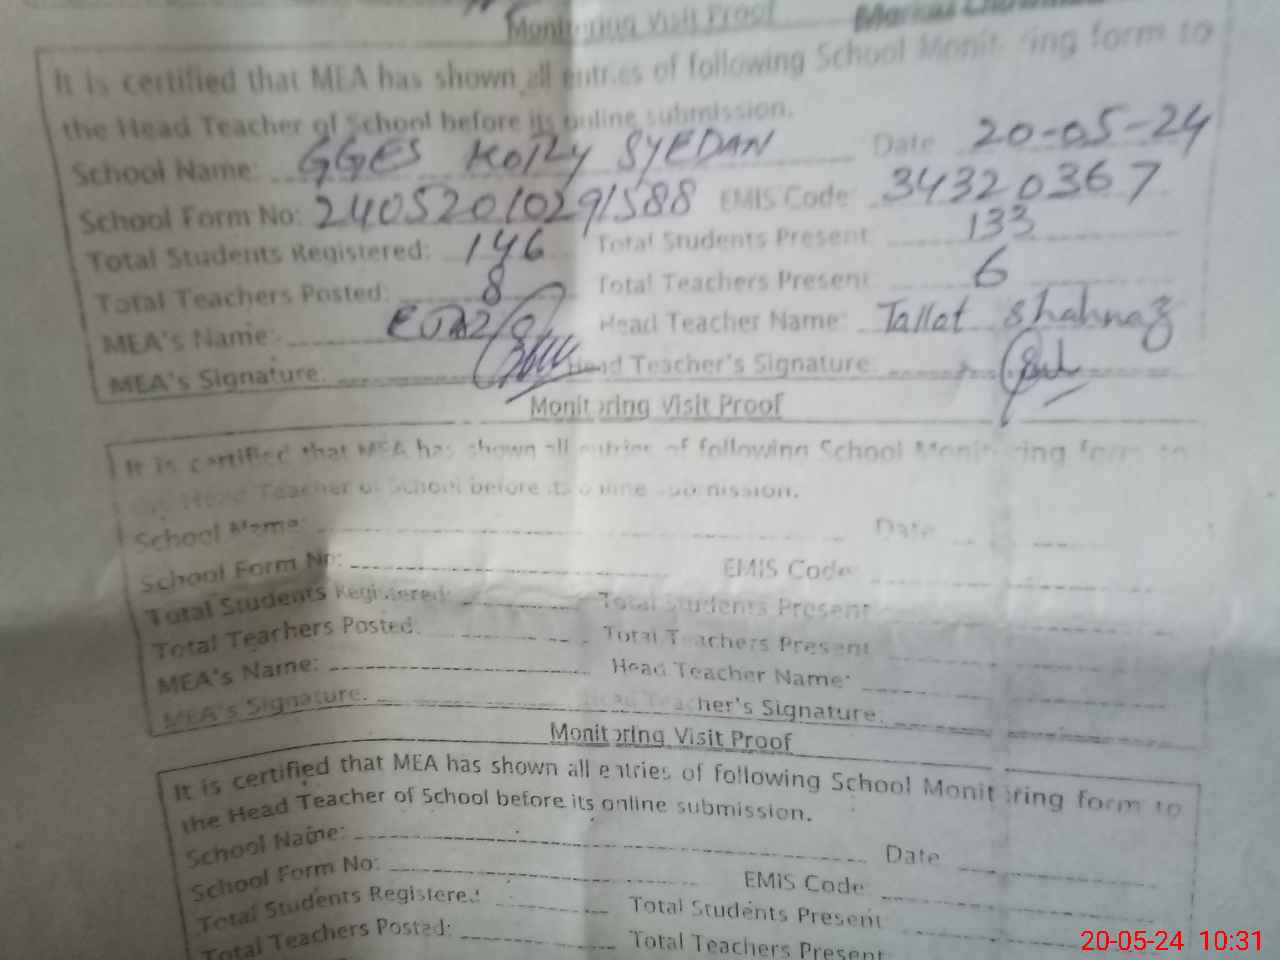 Monitoring Visit Proof
It is certified that MEA has shown all entries of following School Monitoring form to
the Head Teacher of School before its online submission.
School Name: GGES Kotly SYEDAN Date 20-05-24
School Form No: 24052010291588 EMIS Code: 34320367
Total Students Registered: 146 Total Students Present 133
Total Teachers Posted: 8 Total Teachers Present 6
MEA's Name: Head Teacher Name: Tallat Shahnaz
MEA's Signature: Head Teacher's Signature:
Monitoring Visit Proof
It is certified that MEA has shown all entries of following School Monitoring form to
the Head Teacher of School before its online submission.
School Name: Date
School Form No: EMIS Code:
Total Students Registered: Total Students Present
Total Teachers Posted: Total Teachers Present
MEA's Name: Head Teacher Name:
MEA's Signature. Head Teacher's Signature:
Monitoring Visit Proof
It is certified that MEA has shown all entries of following School Monitoring form to
the Head Teacher of School before its online submission.
School Name: Date
School Form No: EMIS Code
Total Students Registered Total Students Present
Total Teachers Posted: Total Teachers Present
20-05-24 10:31